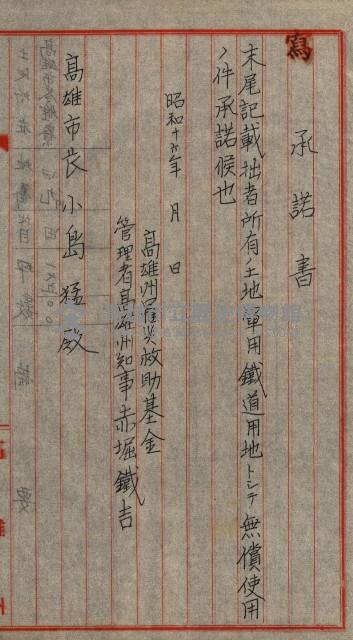 寫
承諾書
末尾記載拙者所有ノ土地軍用鐵道用地トシテ無償使用
ノ件承諾候也
昭和十六年 月 日
高雄州罹災救助基金
管理者高雄州知事赤堀鐵吉
高雄市長小島猛殿